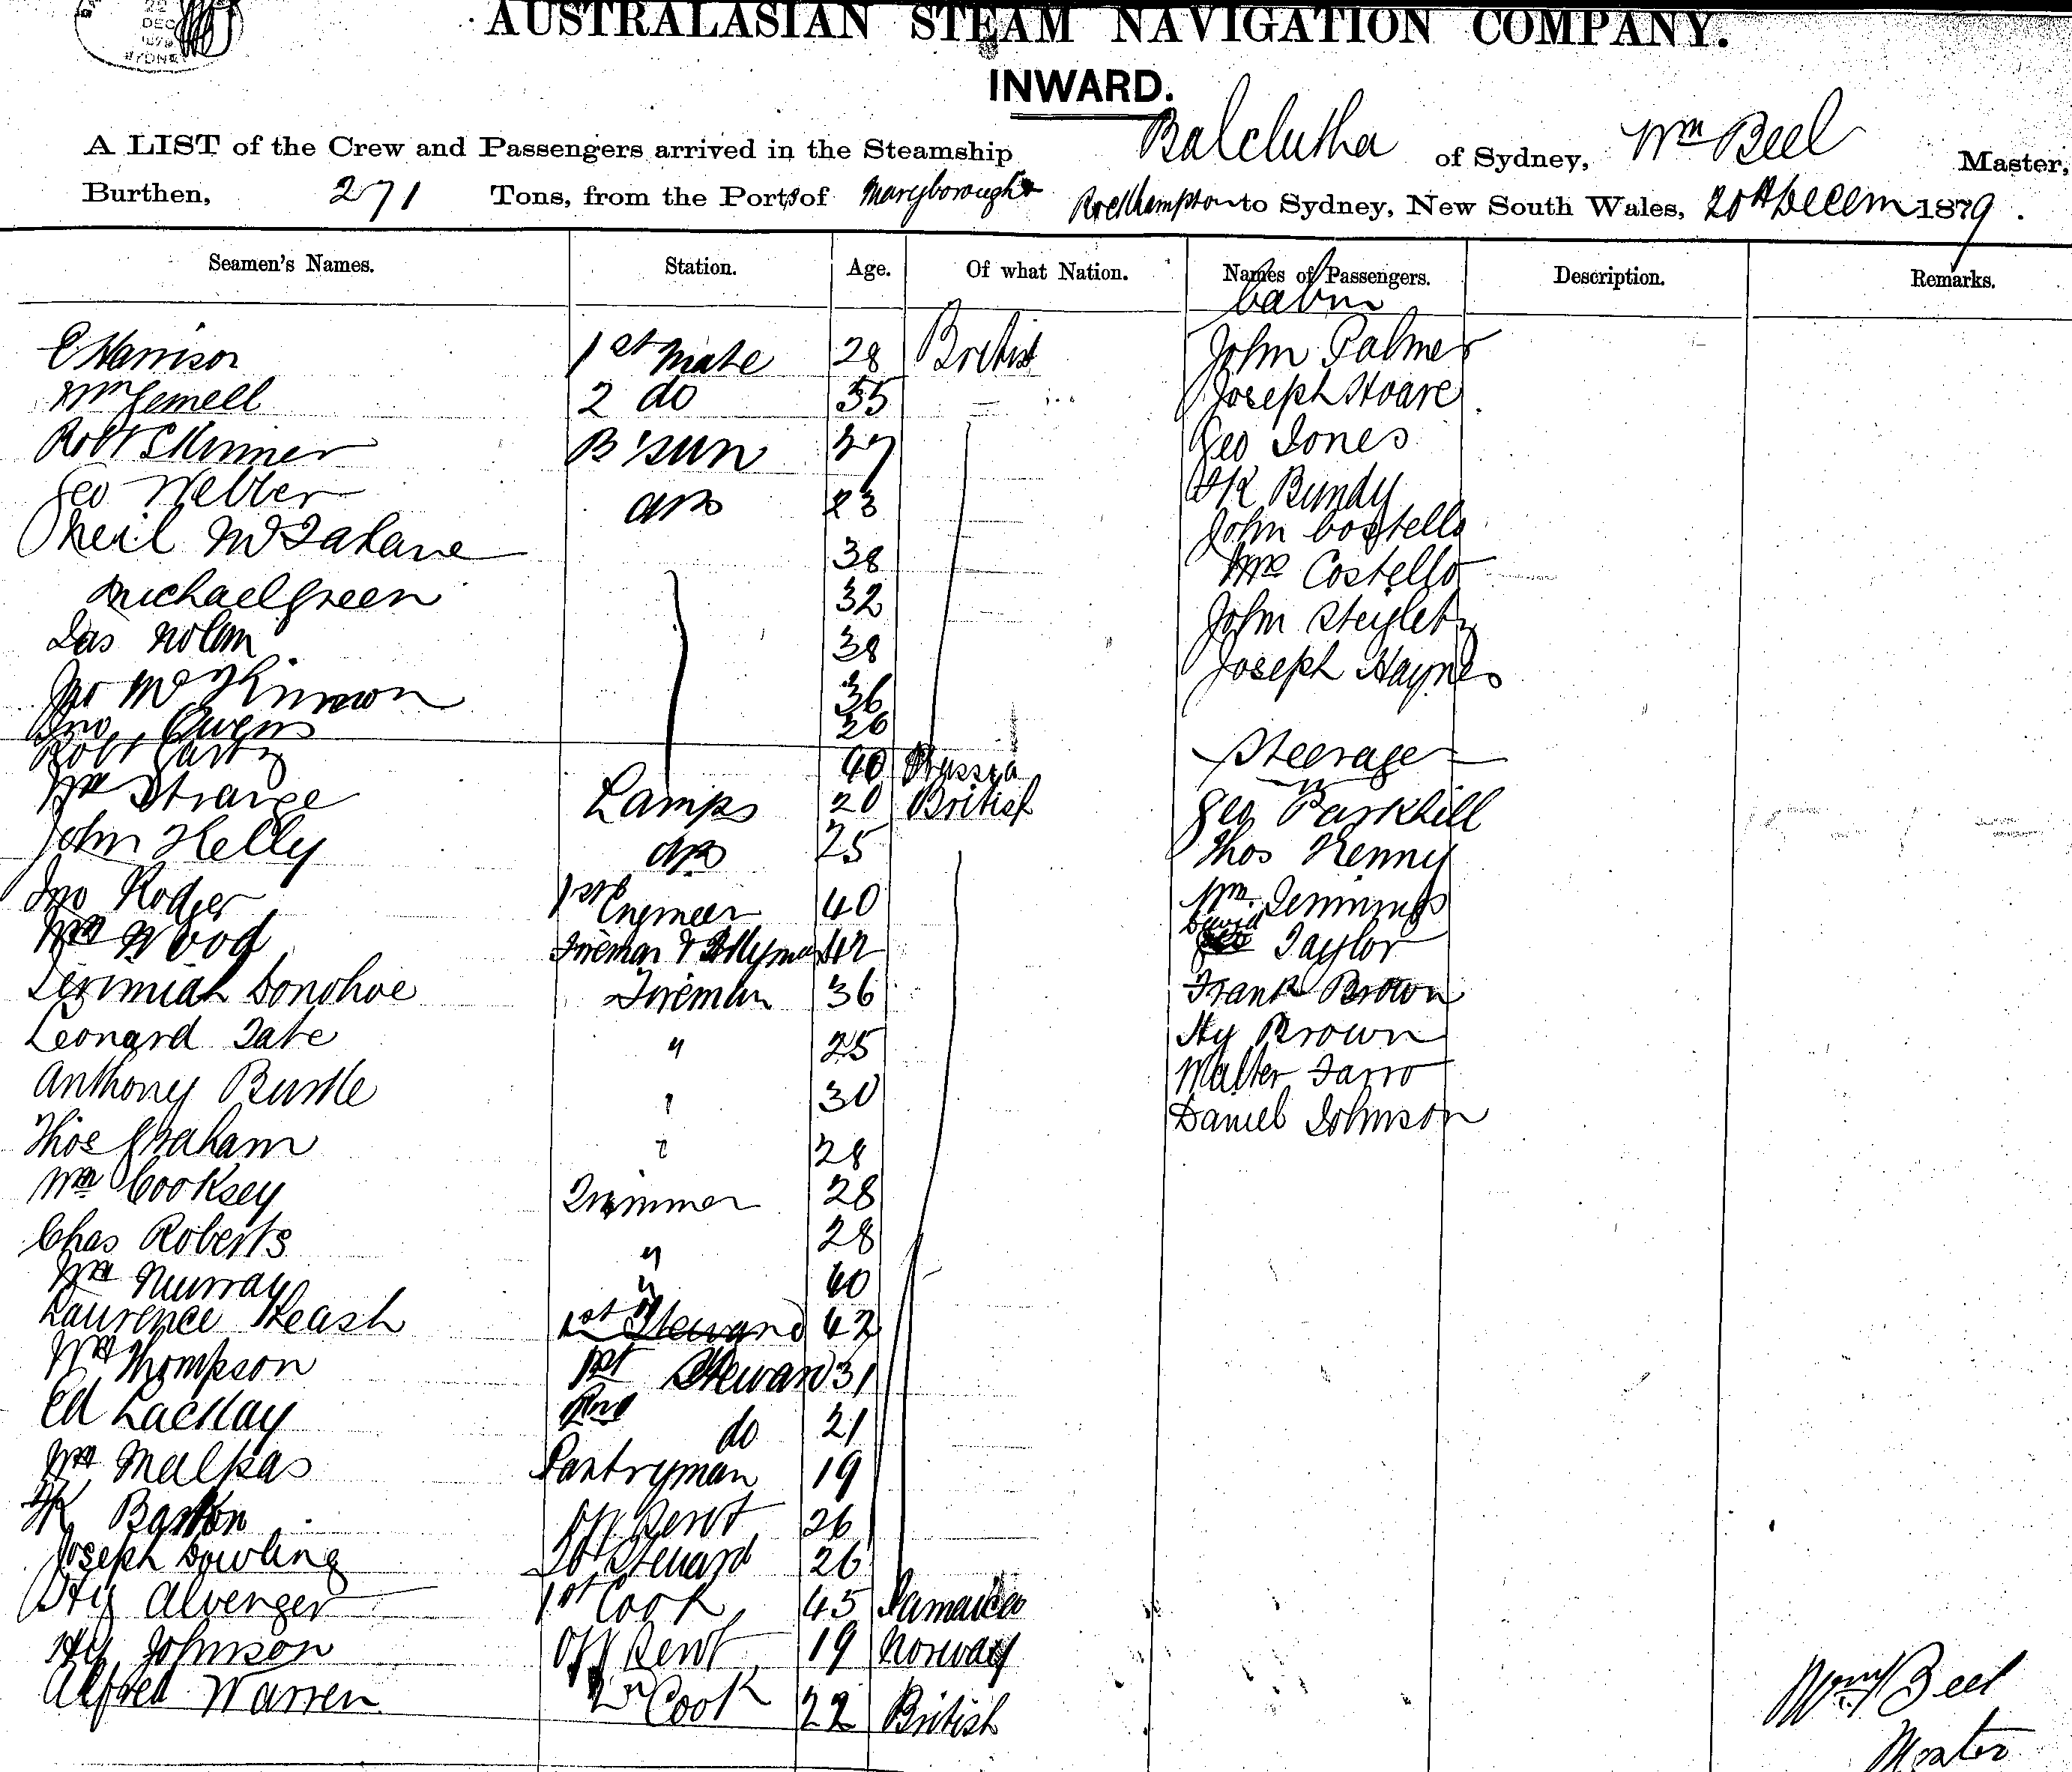 22
DEC
1879
SYDNEY
AUSTRALASIAN STEAM NAVIGATION COMPANY.
INWARD.
A LIST of the Crew and Passengers arrived in the Steamship Balclutha of Sydney, Wm Beel Master,
Burthen, 271 Tons, from the Ports of Maryborough & Rockhampton to Sydney, New South Wales, 20th Decem 1879.
Seamen's Names. Station. Age. Of what Nation. Names of Passengers. Description. Remarks.
Cabin
E Harrison 1st Mate 28 British John Palmer
Wm Gemell 2 do 35 Joseph Hoare
Robt Skinner B'sun 37 Geo Jones
Geo Webber AB 23 Bundy
Neil McFalane 38 John Costello
Mrs Costello
Michael Green 32 John Steyletz
Jas Nolan 38 Joseph Haynes
Jno McKinnon 36
Jno Owens 26 Steerage
Robt 40 Russia
Wm Strange Lamps 20 British Geo Parkhill
John Kelly AB 25 Thos Kenny
Jno Rodger 1st Engineer 40 Wm Jennings
Wm Wood Fireman & 42 David Taylor
Jerimiah Donohoe Fireman 36 Frank Brown
Leonard Tate " 25 Hy Brown
Anthony Burke " 30 Walter Farro
Daniel Johnson
Thos Graham " 28
Wm Cooksey Trimmer 28
Chas Roberts " 28
Wm Murray " 40
Laurence Keash 1st Steward 42
Wm Thompson 1st Steward 31
Ed Lackay 2nd do 21
Wm Malpas Pantryman 19
Barton Off Servt 26
Joseph Dowling Steward 26
Hy Alvenger 1st Cook 45 Jamaica
Hy Johnson Off Servt 19 Norway
Alfred Warren 2n Cook 22 British
Wm Beel
Master